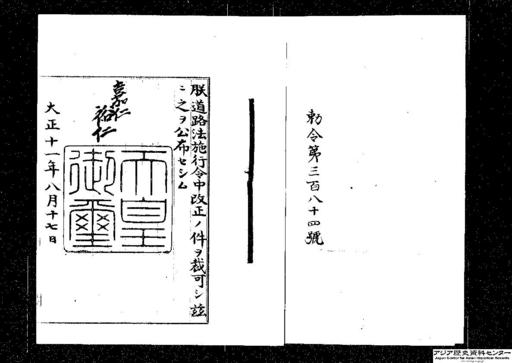 勅令第三百八十四號
朕道路法施行令中改正ノ件ヲ裁可シ茲
ニ之ヲ公布セシム
嘉仁
裕仁
天皇
御璽
大正十一年八月十七日
アジア歴史資料センター
Japan Center for Asian Historical Records